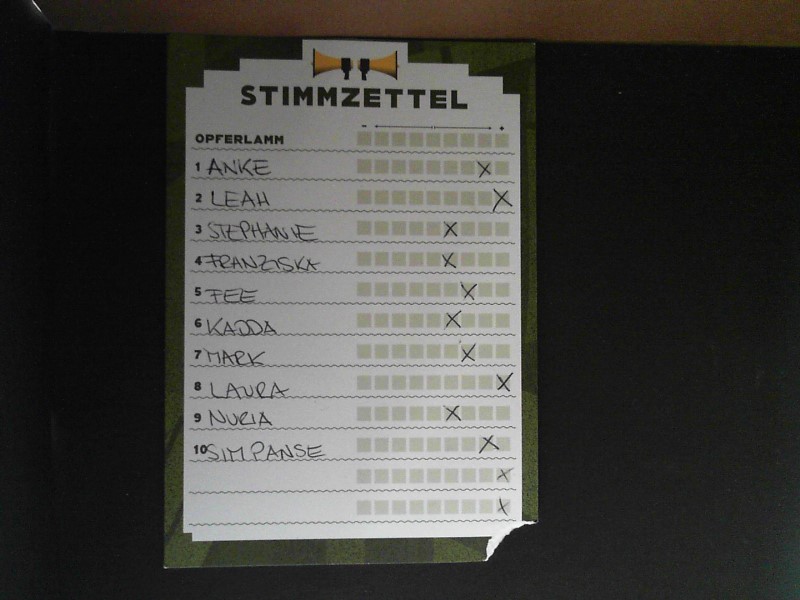 STIMMZETTEL
OPFERLAMM
1 ANKE
2 LEAH
3 STEPHANIE
4 FRANZISKA
5 FEE
6 KADDA
7 MARK
8 LAURA
9 NURIA
10 SIM PANSE